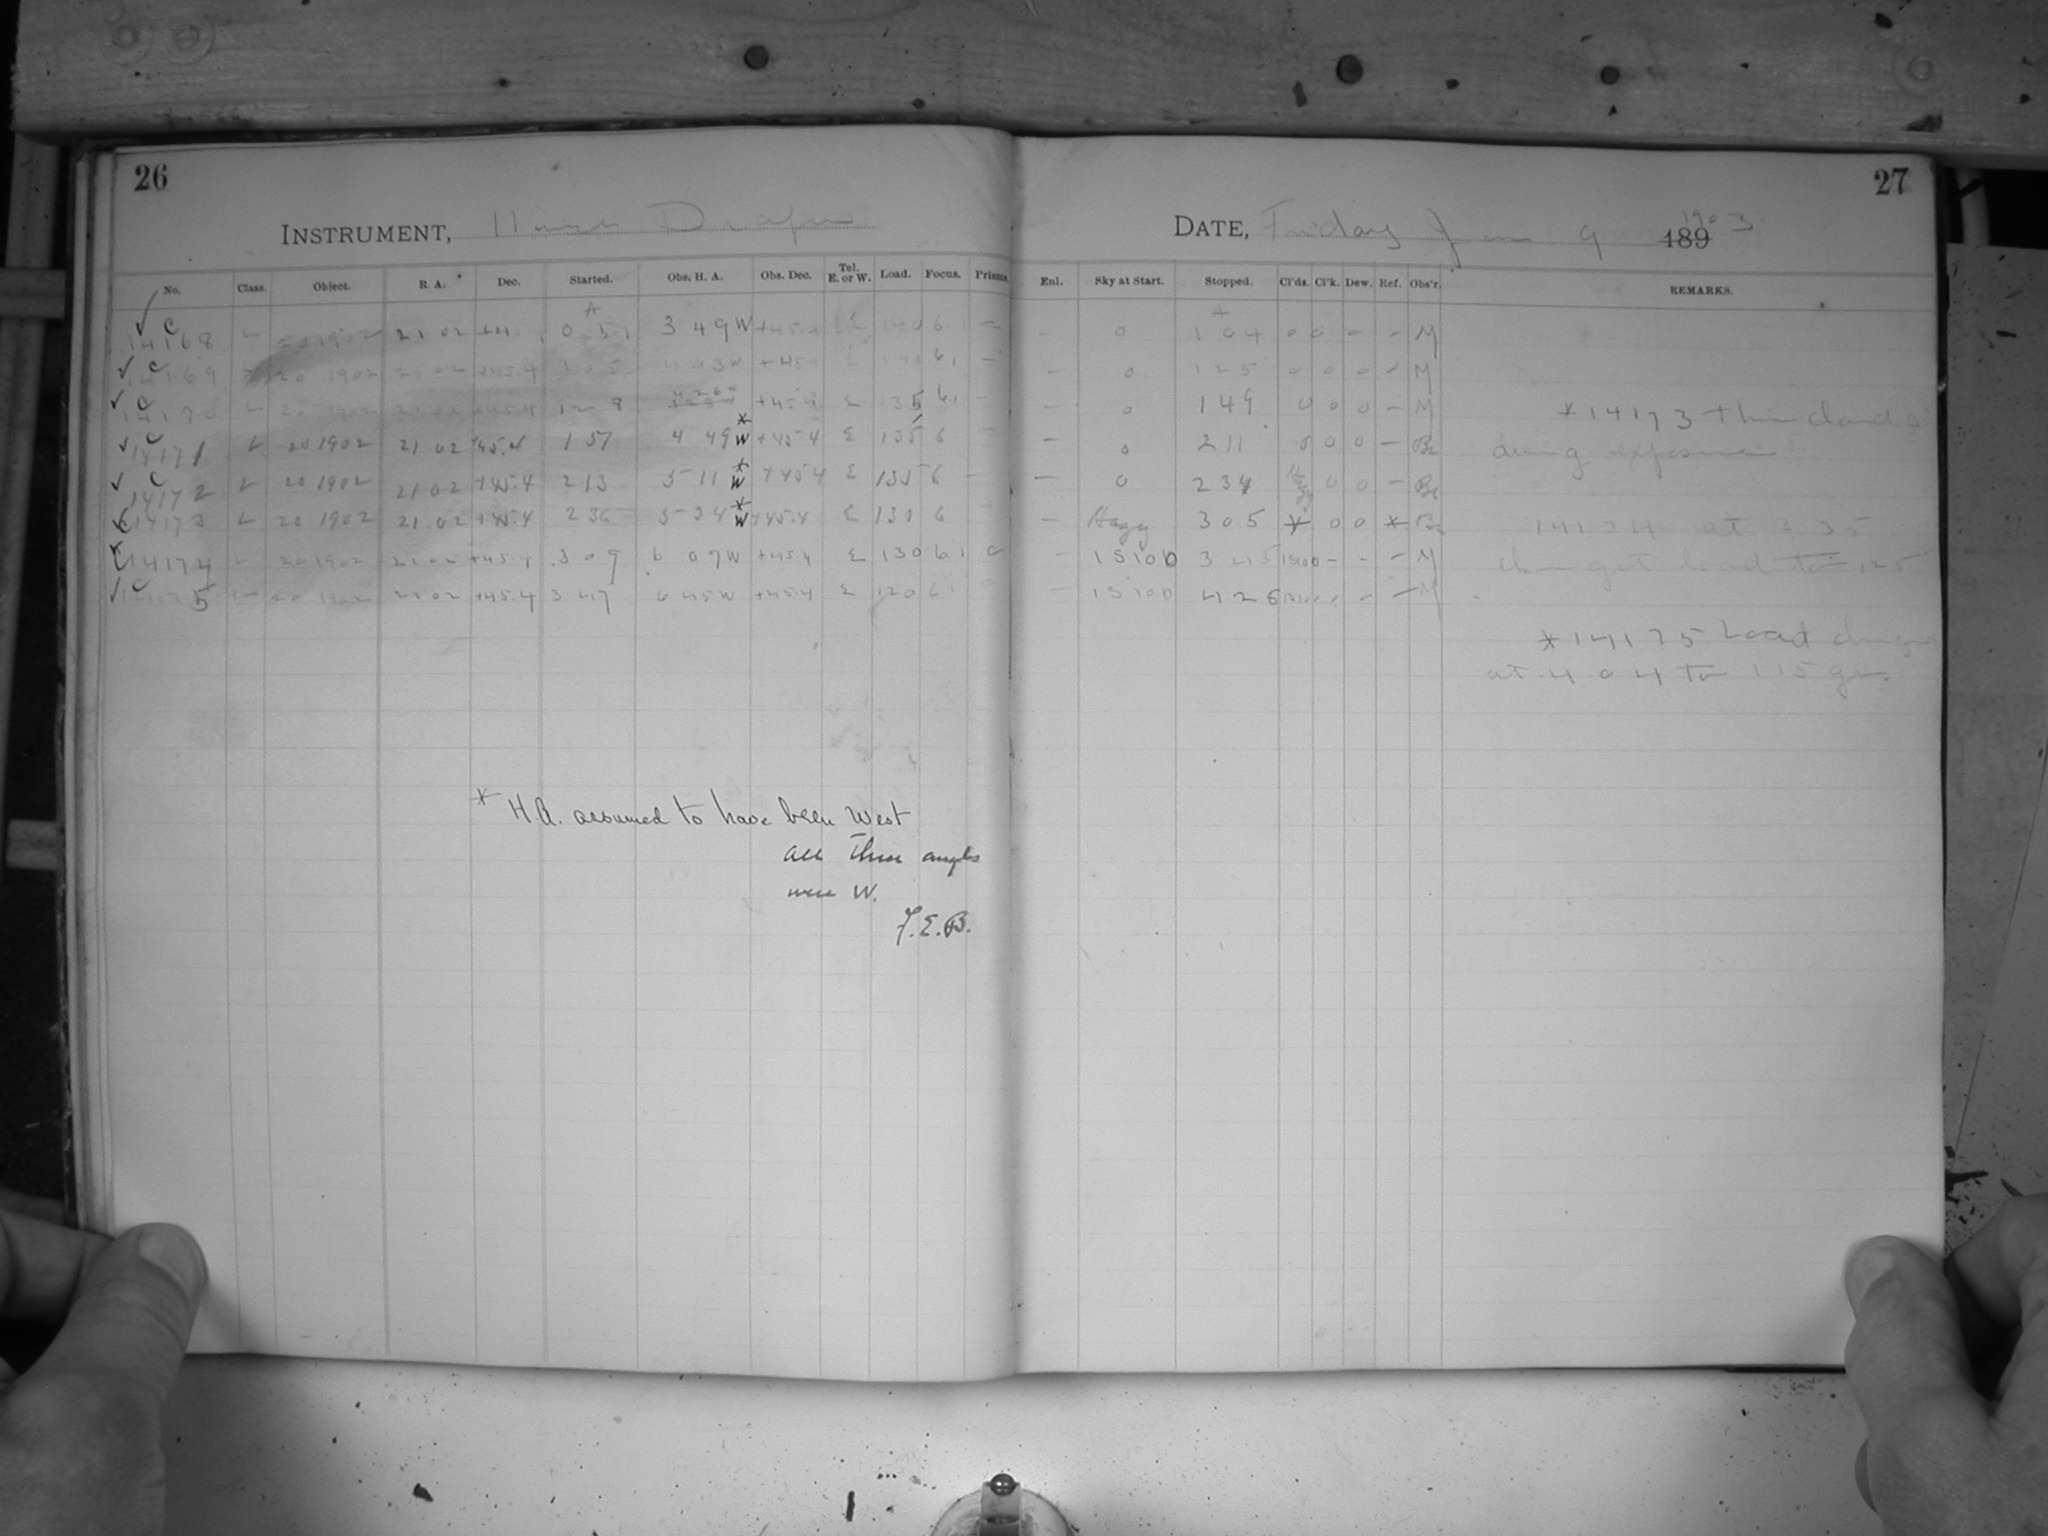 26
INSTRUMENT, Draper
No. Class. Object. R. A. Dec. Started. Obs. H. A. Obs. Dec. Tel. E. or W. Load. Focus. Prisms.
14168 L 20 1902 21 02 0 51 3 49 W +45.4 E 140 6 1 —
14169 20 1902 21 02 +45.4 1 05 4 03 W +45.4 E 6 1 —
14170 L 20 1902 21 02 +45.4 1 28 +45.4 E 135 6 1 —
14171 L 20 1902 21 02 +45.4 1 51 4 49 W * +45.4 E 135 6 —
14172 L 20 1902 21 02 +45.4 2 13 5 11 W * +45.4 E 135 6 —
14173 L 20 1902 21 02 +45.4 2 36 5 34 W * +45.4 E 130 6
14174 L 20 1902 21 02 +45.4 3 09 6 07 W +45.4 E 130 6 1
14175 L 20 1902 21 02 +45.4 3 47 6 45 W +45.4 E 120 6 1
* H.A. assumed to have been West
all these angles
were W.
F.E.B.
27
DATE, Friday Jan 9 189 1903
Enl. Sky at Start. Stopped. Cl'ds. Cl'k. Dew. Ref. Obs'r. REMARKS.
— 0 A 1 04 0 0 — — M
— 0 1 25 0 0 0 — M
— 0 1 49 0 0 0 — M
— 0 2 11 0 0 0 — Be
— 0 2 34 0 0 — Be
— Hazy 3 05 * 0 0 * Be
— 1S10b 3 45 1S10b — — — M
— 1S10b 4 26 — M
* 14173 thin clouds
during exposure
14174 at 3 35
changed load to 125
* 14175 Load changed
at 4 04 to 115 gr.